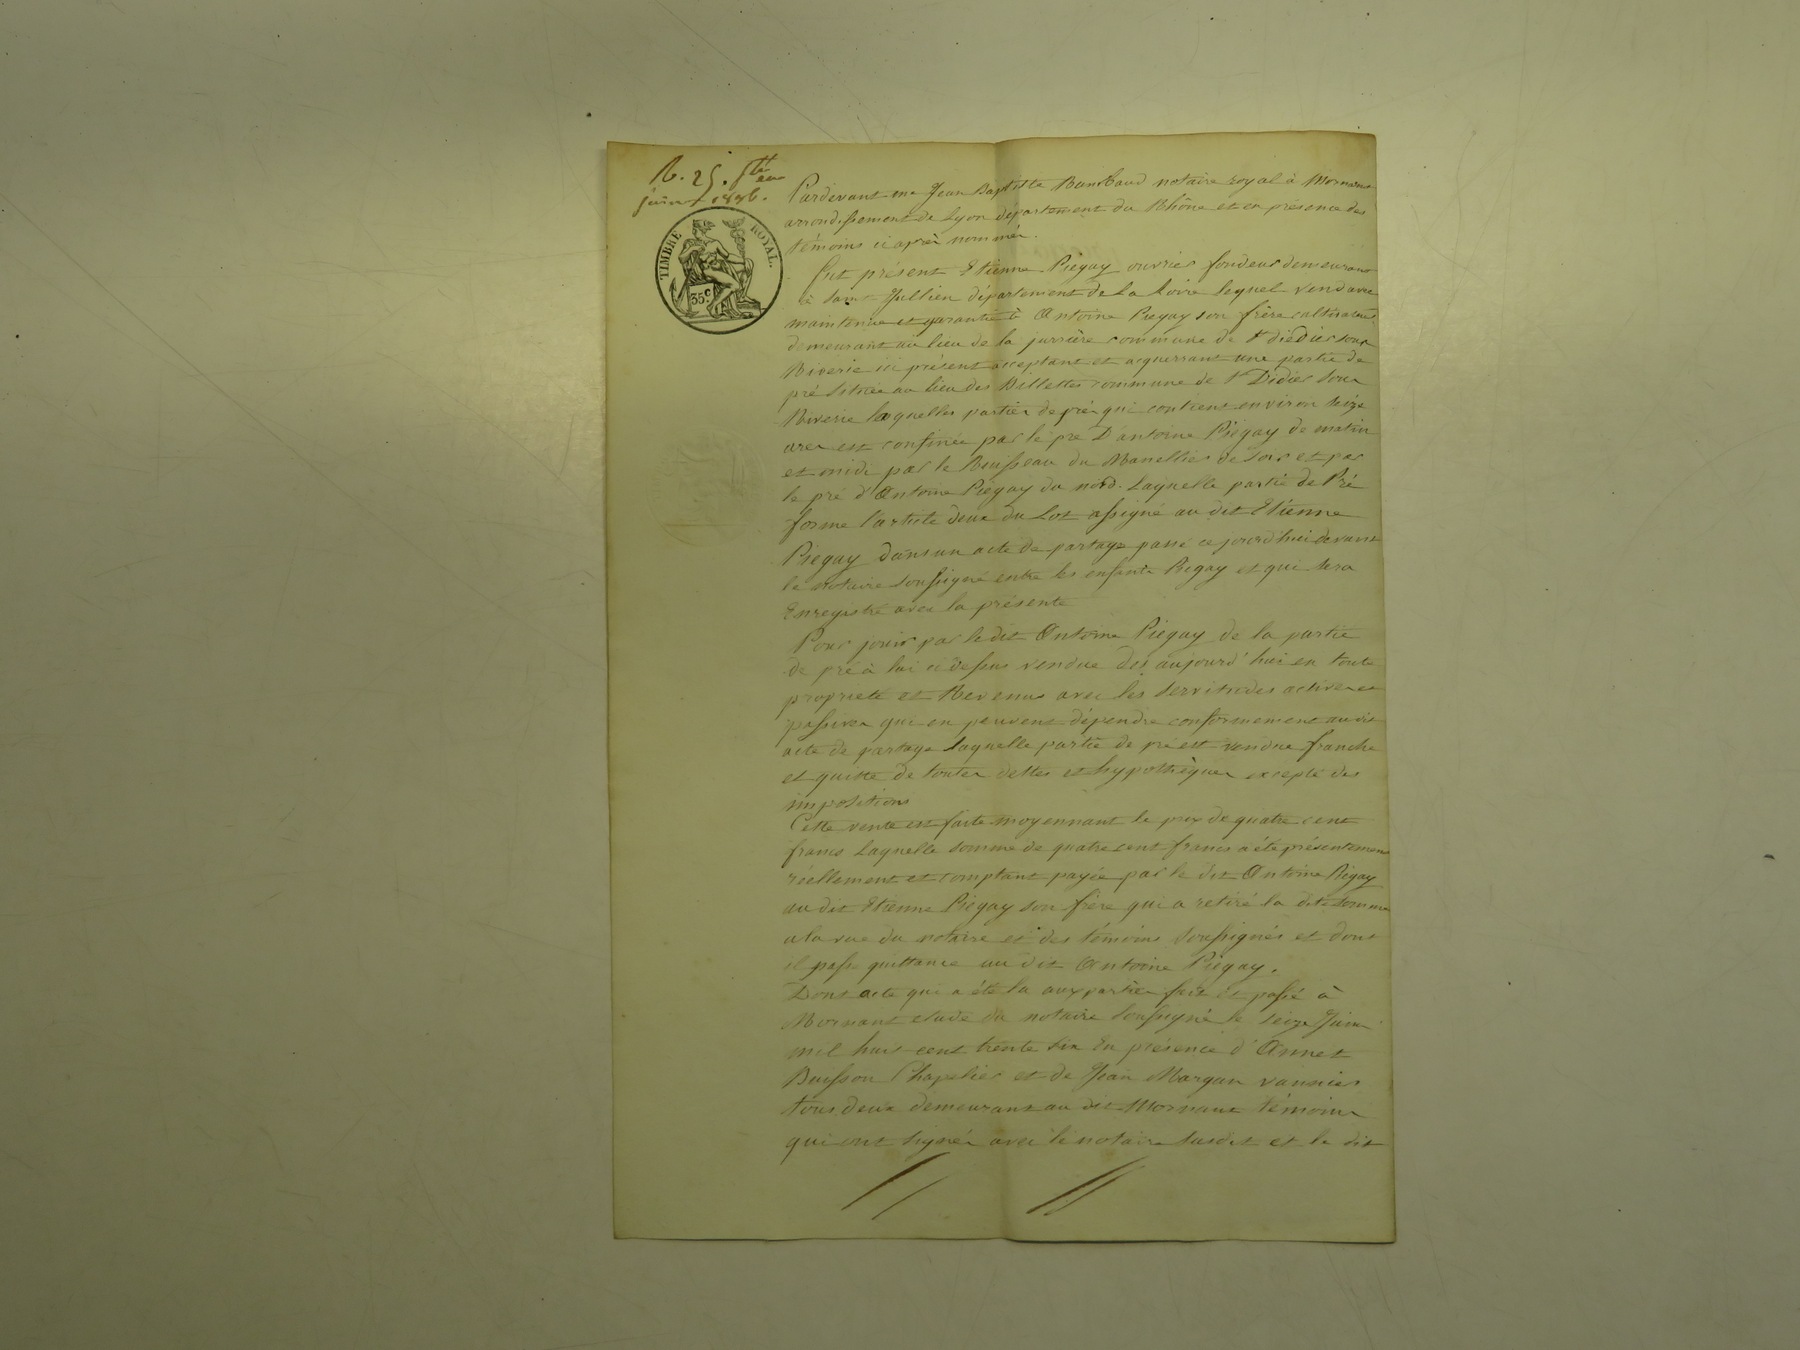 R. 25.
juin 1836.
TIMBRE ROYAL.
35 c
Pardevant me Jean Baptiste Rambaud notaire royal à Mornant
arrondissement de Lyon département du Rhône et en présence des
témoins ci après nommés.
fut présent Etienne Piégay ouvrier fondeur demeurant
à Saint Jullien département de la Loire lequel vend avec
maintenue et garantie à Antoine Piegay son frère cultivateur
demeurant au lieu de la jurrière commune de St didier sous
Riverie ici présent acceptant et acquerrant une partie de
pré située au lieu des Billettes commune de St Didier sous
Riverie laquelles partier de pré qui contient environ seize
ares est confinée par le pré D'antoine Piégay de matin
et midi par le Ruisseau du Manellier de soir et par
le pré d'Antoine Piégay du nord. Laquelle partie de Pré
forme l'article deux du Lot assigné au dit Etienne
Piegay dans un acte de partage passé ce jourd'hui devant
le notaire soussigné entre les enfants Piegay et qui sera
Enregistré avec la présente
Pour jouir par le dit Antoine Piégay de la partie
de pré à lui ci dessus vendue dès aujourd'hui en toute
propriété et Revenus avec les servitudes actives et
passives qui en peuvent dépendre conformement au dit
acte de partage Laquelle partie de pré est vendue franche
et quitte de toutes dettes et hypothèques excepté des
impositions
Cette vente est faite moyennant le prix de quatre cent
francs Laquelle somme de quatre cent francs a été présentement
réellement et comptant payée par le dit Antoine Piégay
au dit Etienne Piégay son frère qui a retiré la dite somme
a la vue du notaire et des témoins soussignés et dont
il passe quittance au dit Antoine Piégay.
Dont acte qui a été lu aux parties fait et passé à
Mornant etude du notaire soussigné le seize Juin
mil huit cent trente six En présence d'Annet
Buisson Chapelier et de Jean Margan vannier
tous deux demeurant au dit Mornant témoins
qui ont signés avec le notaire susdit et le dit